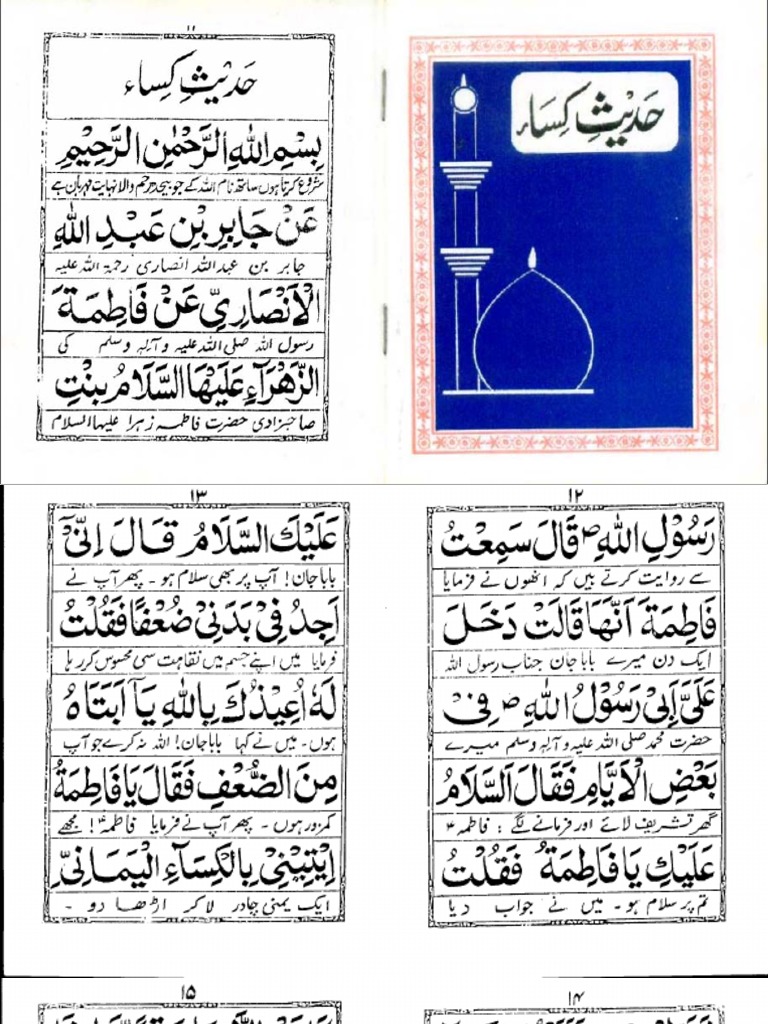 حدیثِ کساء
۱۱
حدیثِ کساء
بِسْمِ اللهِ الرَّحْمٰنِ الرَّحِيْمِ
شروع کرتا ہوں ساتھ نام اللہ کے جو بیحد رحم والا نہایت مہربان ہے
عَنْ جَابِرِ بْنِ عَبْدِ اللهِ
جابر بن عبداللہ انصاری رحمۃ اللہ علیہ
الْاَنْصَارِيِّ عَنْ فَاطِمَةَ
رسول اللہ صلی اللہ علیہ و آلہٖ وسلم کی
الزَّهْرَآءِ عَلَيْهَا السَّلَامُ بِنْتِ
صاحبزادی حضرت فاطمہ زہرا علیہا السلام
۱۲
رَسُوْلِ اللهِ ص قَالَ سَمِعْتُ
سے روایت کرتے ہیں کہ انھوں نے فرمایا
فَاطِمَةَ اَنَّهَا قَالَتْ دَخَلَ
ایک دن میرے باباجان جناب رسول اللہ
عَلَيَّ اَبِيْ رَسُوْلُ اللهِ ص فِيْ
حضرت محمد صلی اللہ علیہ و آلہٖ وسلم میرے
بَعْضِ الْاَيَّامِ فَقَالَ اَلسَّلَامُ
گھر تشریف لائے اور فرمانے لگے : فاطمہ ؑ
عَلَيْكِ يَا فَاطِمَةُ فَقُلْتُ
تم پر سلام ہو۔ میں نے جواب دیا
۱۳
عَلَيْكَ السَّلَامُ قَالَ اِنِّيْٓ
باباجان! آپ پر بھی سلام ہو۔ پھر آپ نے
اَجِدُ فِيْ بَدَنِيْ ضُعْفًا فَقُلْتُ
فرمایا میں اپنے جسم میں نقاہت سی محسوس کر رہا
لَهٗ اُعِيْذُكَ بِاللهِ يَآ اَبَتَاهُ
ہوں۔ میں نے کہا باباجان! اللہ نہ کرے جو آپ
مِنَ الضُّعْفِ فَقَالَ يَا فَاطِمَةُ
کمزور ہوں۔ پھر آپ نے فرمایا فاطمہ ؑ! مجھے
اِيْتِيْنِيْ بِالْكِسَآءِ الْيَمَانِيِّ
ایک یمنی چادر لا کر اڑھا دو ۔
۱۴
۱۵